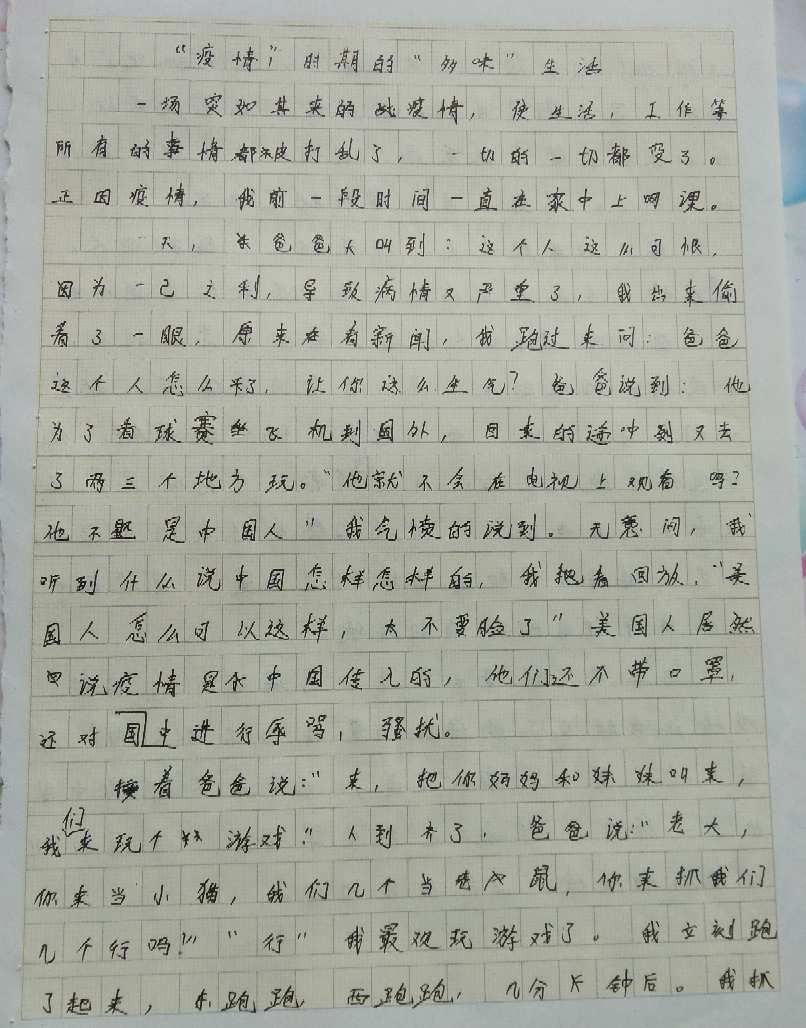 “疫情”时期的“多味”生活
一场突如其来的疫情，使生活，工作等
所有的事情都被打乱了，一切的一切都变了。
正因疫情，我前一段时间一直在家中上网课。
一天，爸爸大叫到：这个人这么可恨，
因为一己之利，导致病情又严重了，我出来偷
着了一眼，原来在看新闻，我跑过来问：爸爸
这个人怎么了，让你这么生气？爸爸说到：他
为了看球赛坐飞机到国外，回来的途中到又去
了两三个地方玩。“他就不会在电视上观看吗？
他不是中国人”我气愤的说到。无意间，我
听到什么说中国怎样怎样的，我把看回放，“美
国人怎么可以这样，太不要脸了”美国人居然
说疫情是从中国传入的，他们还不带口罩，
还对国中进行辱骂，骚扰。
接着爸爸说：“来，把你妈妈和妹妹叫来，
我们来玩个游戏”人到齐了，爸爸说：“老大，
你来当小猫，我们几个当老鼠，你来抓我们
几个行吗？”“行”我最欢玩游戏了。我立刻跑
了起来，东跑跑，西跑跑，几分钟后。我抓